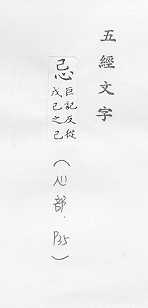 五經文字
忌巨記反從
戊己之己
(心部.P35)